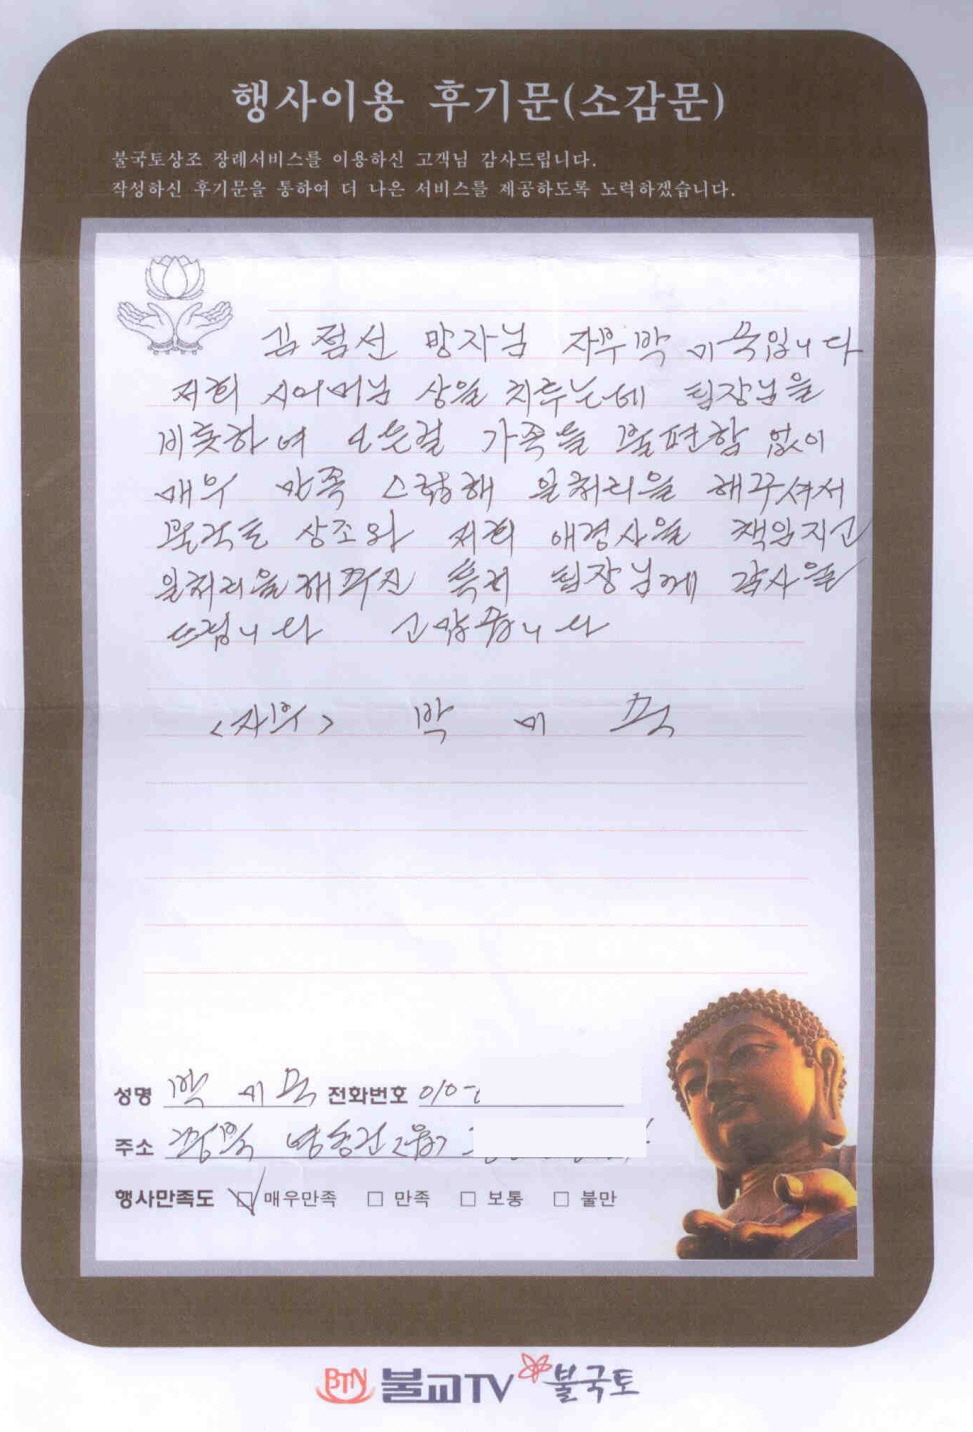 행사이용 후기문(소감문)
불국토상조 장례서비스를 이용하신 고객님 감사드립니다.
작성하신 후기문을 통하여 더 나은 서비스를 제공하도록 노력하겠습니다.
김점선 망자님 자부 박미숙입니다
저희 시어머님 상을 치루는데 팀장님을
비롯하여 모든걸 가족을 불편함 없이
매우 만족 스럽게 일처리을 해주셔서
불국토 상조와 저희 애경사을 책임지고
일처리을 해주신 특히 팀장님께 감사을
드립니다 고맙습니다
<자부> 박 미 숙
성명 박 미 숙 전화번호 010-
주소 경북
행사만족도 ☑ 매우만족 □ 만족 □ 보통 □ 불만
BTN 불교TV 불국토